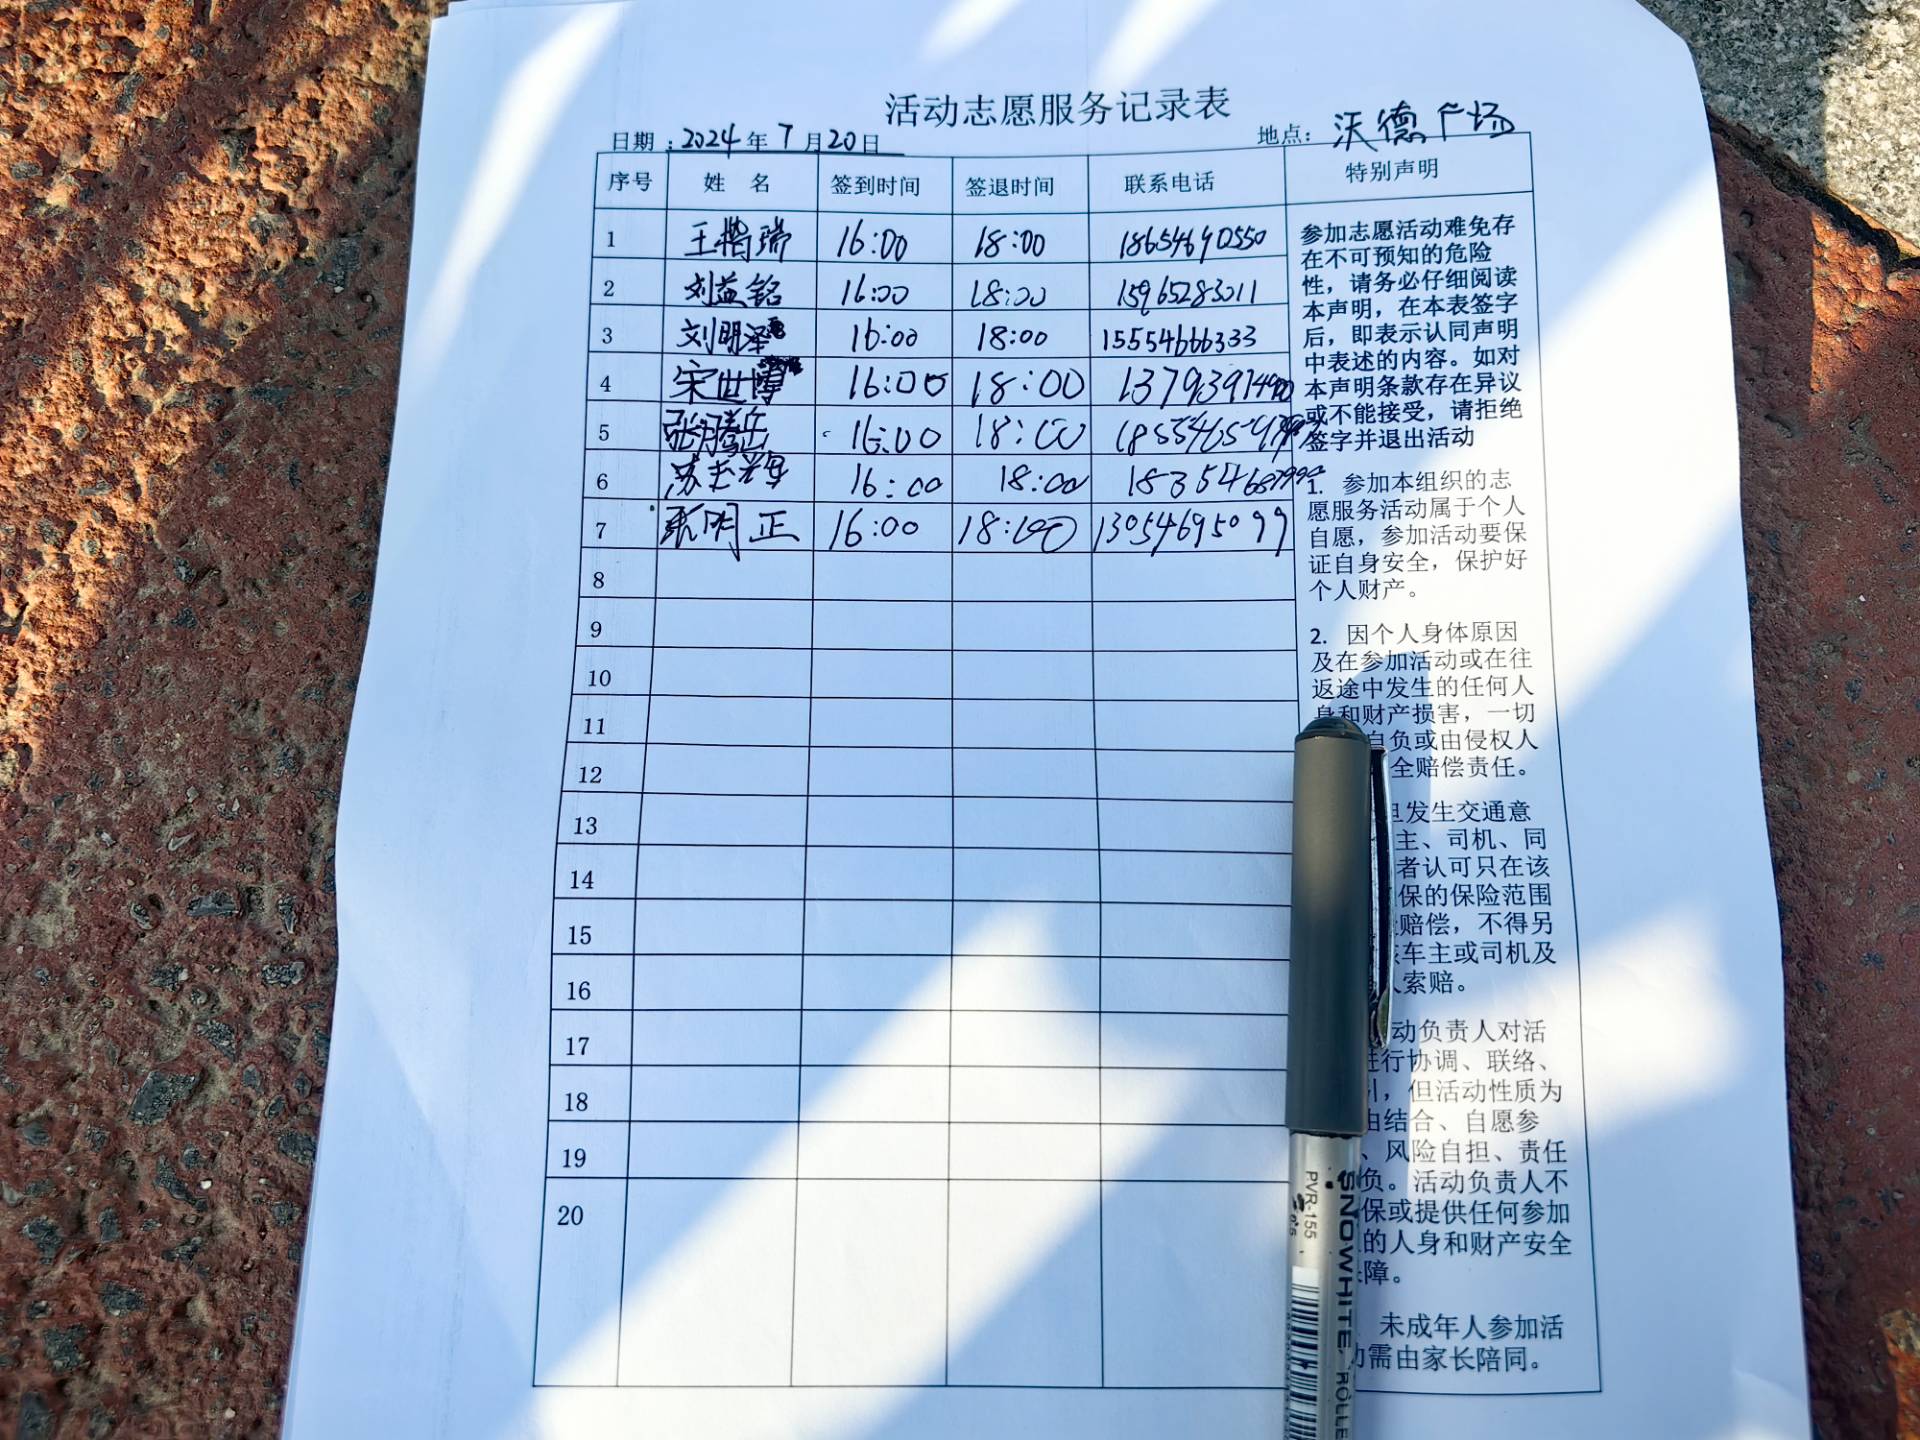 活动志愿服务记录表
日期：2024年7月20日 地点：沃德广场
序号 姓 名 签到时间 签退时间 联系电话 特别声明
1 王楷瑞 16:00 18:00 18654690550
2 刘益铭 16:00 18:00 15965283011
3 刘明泽 16:00 18:00 15554666333
4 宋世博 16:00 18:00
5 张腾岳 16:00 18:00
6 16:00 18:00
7 张明正 16:00 18:00 13054695099
8
9
10
11
12
13
14
15
16
17
18
19
20
参加志愿活动难免存
在不可预知的危险
性，请务必仔细阅读
本声明，在本表签字
后，即表示认同声明
中表述的内容。如对
本声明条款存在异议
或不能接受，请拒绝
签字并退出活动
1. 参加本组织的志
愿服务活动属于个人
自愿，参加活动要保
证自身安全，保护好
个人财产。
2. 因个人身体原因
及在参加活动或在往
返途中发生的任何人
身和财产损害，一切
自负或由侵权人
全赔偿责任。
旦发生交通意
主、司机、同
者认可只在该
保的保险范围
赔偿，不得另
车主或司机及
人索赔。
动负责人对活
进行协调、联络、
引，但活动性质为
由结合、自愿参
、风险自担、责任
负。活动负责人不
保或提供任何参加
的人身和财产安全
障。
未成年人参加活
动需由家长陪同。
SNOWHITE
PVR-155
0.5